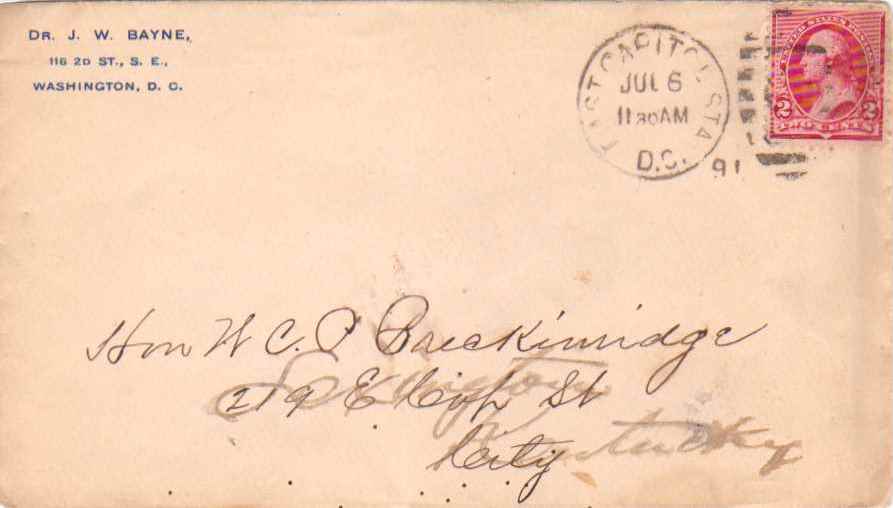 DR. J. W. BAYNE,
116 2D ST., S. E.,
WASHINGTON, D. C.
EAST CAPITOL STA
JUL 6
1130AM
D.C.
91
UNITED STATES POSTAGE
2 2
TWO CENTS
Hon W C. P Breckinridge
219 E Cap St
City
Lexington
Kentucky